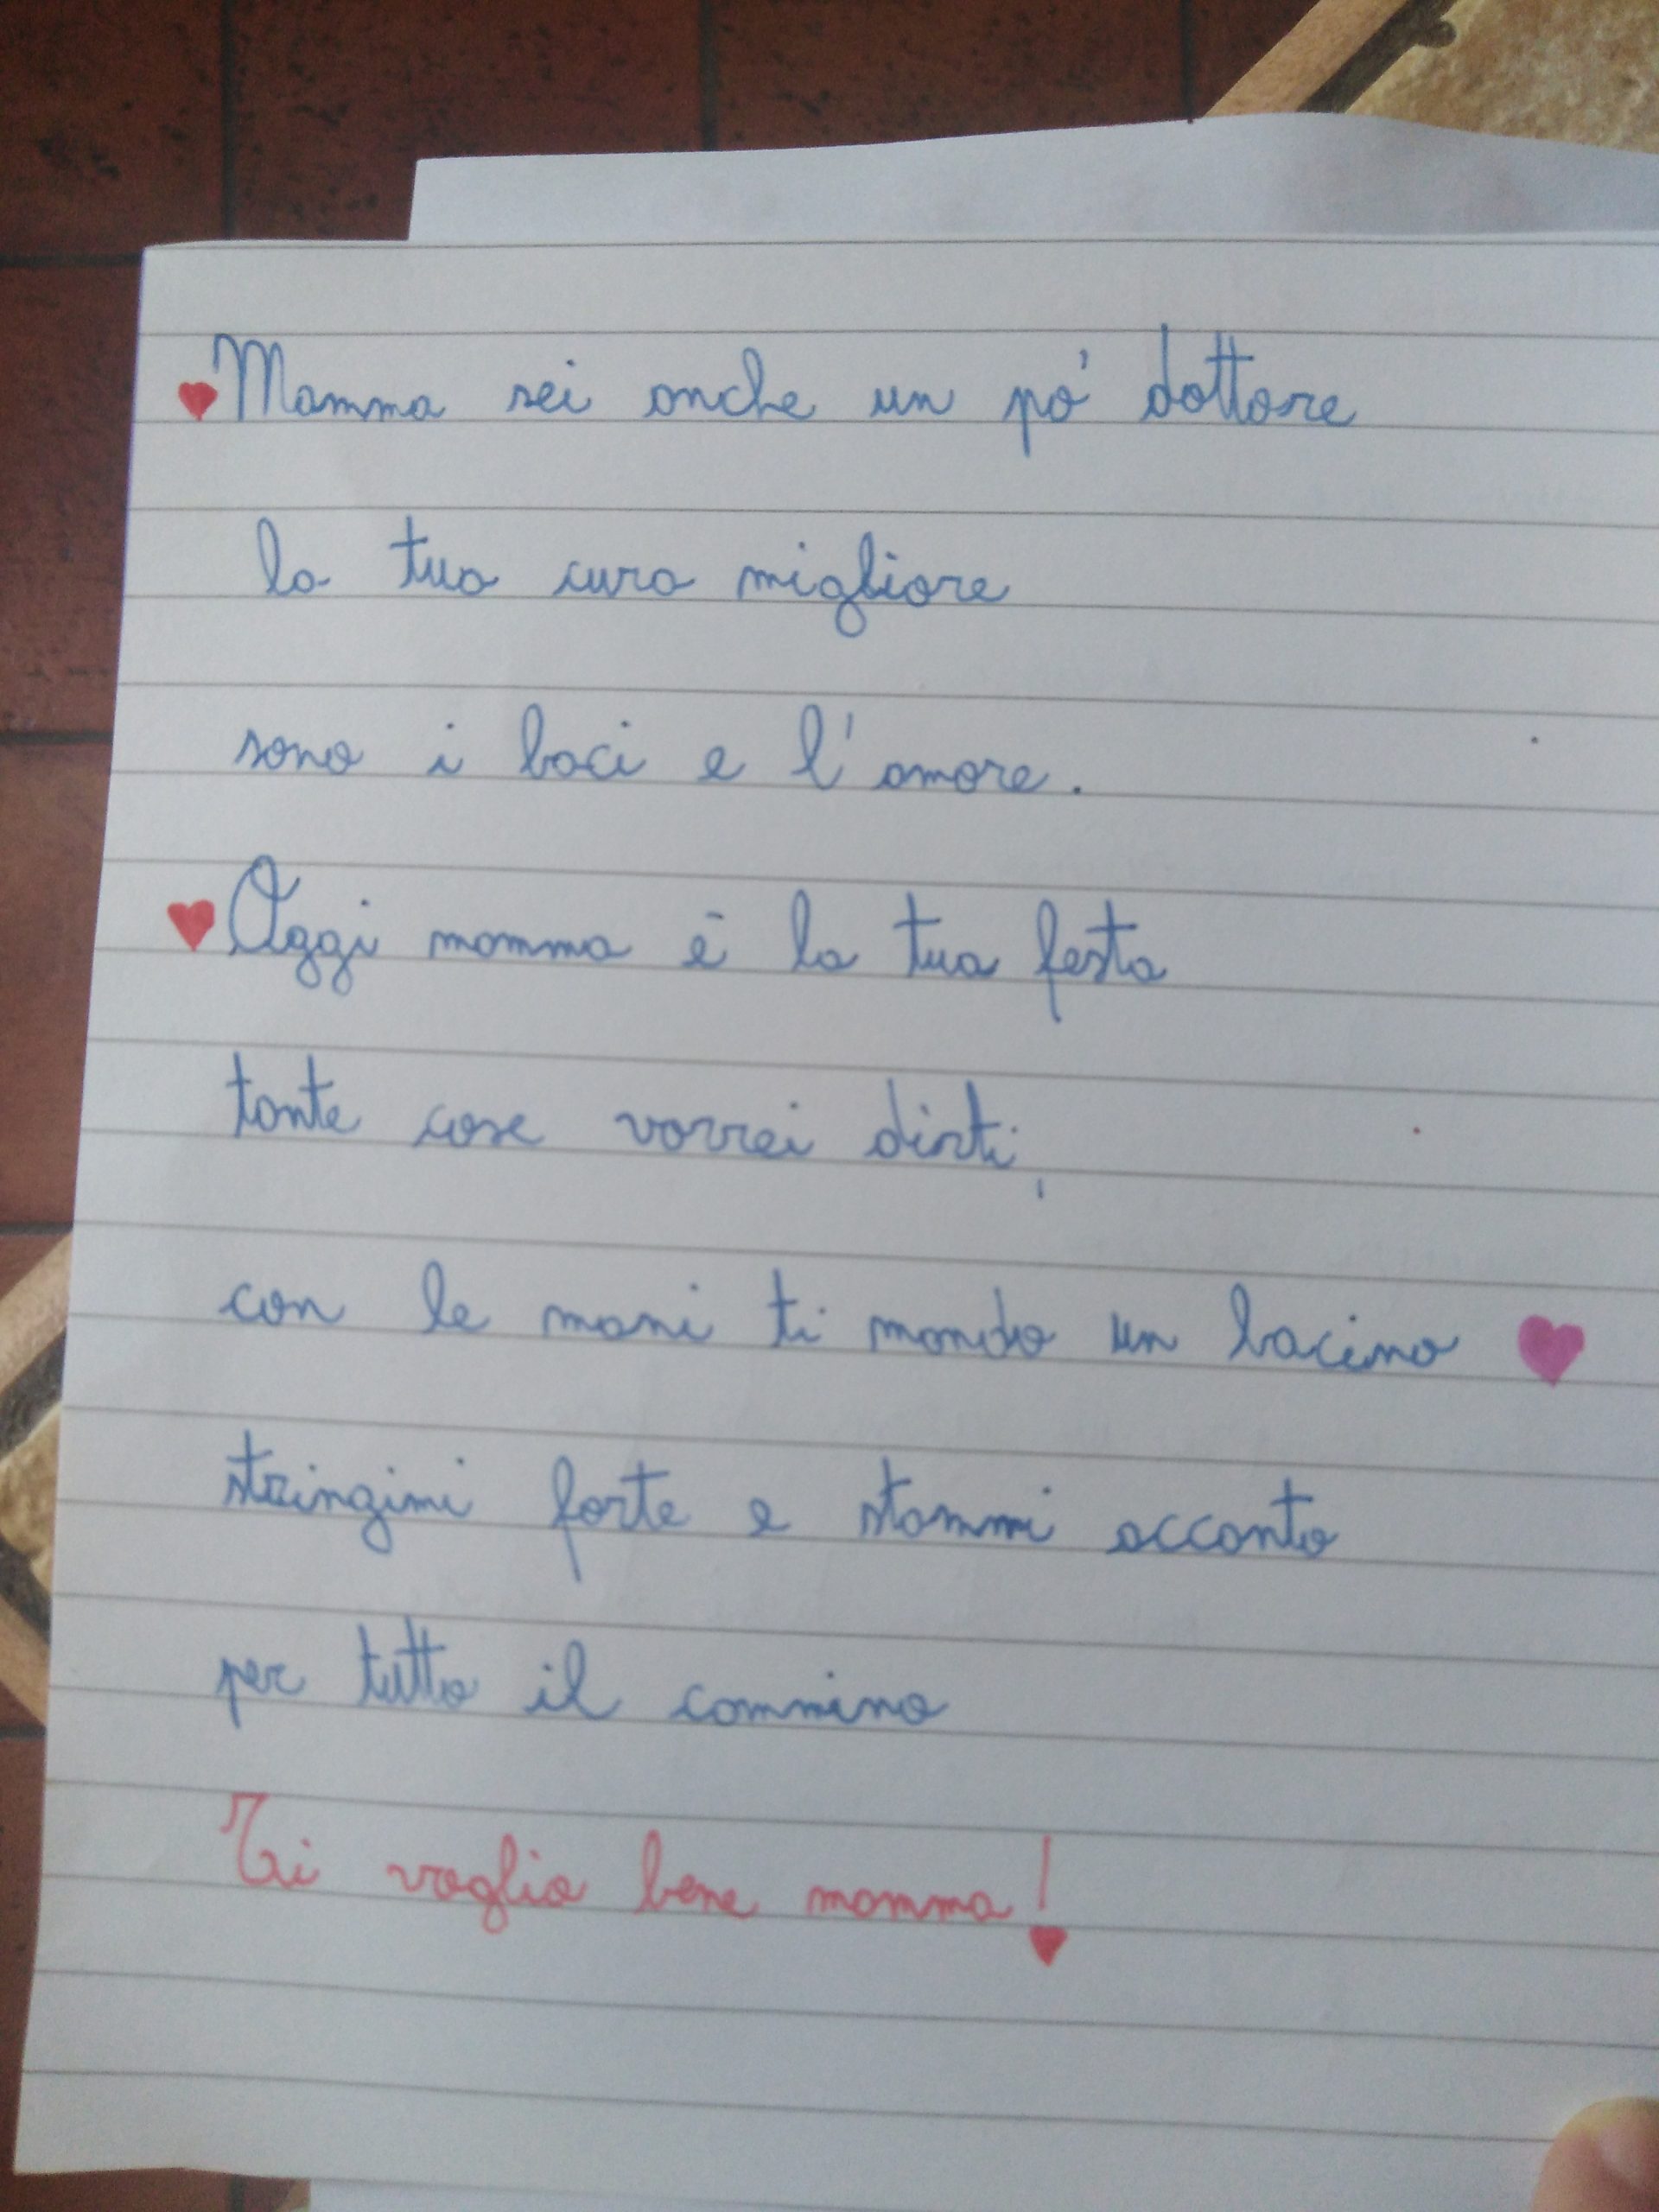 Mamma sei anche un pò dottore
la tua cura migliore
sono i baci e l'amore.
Oggi mamma è la tua festa
tante cose vorrei dirti,
con le mani ti mando un bacino
stringimi forte e stammi accanto
per tutto il cammino
Ti voglio bene mamma!